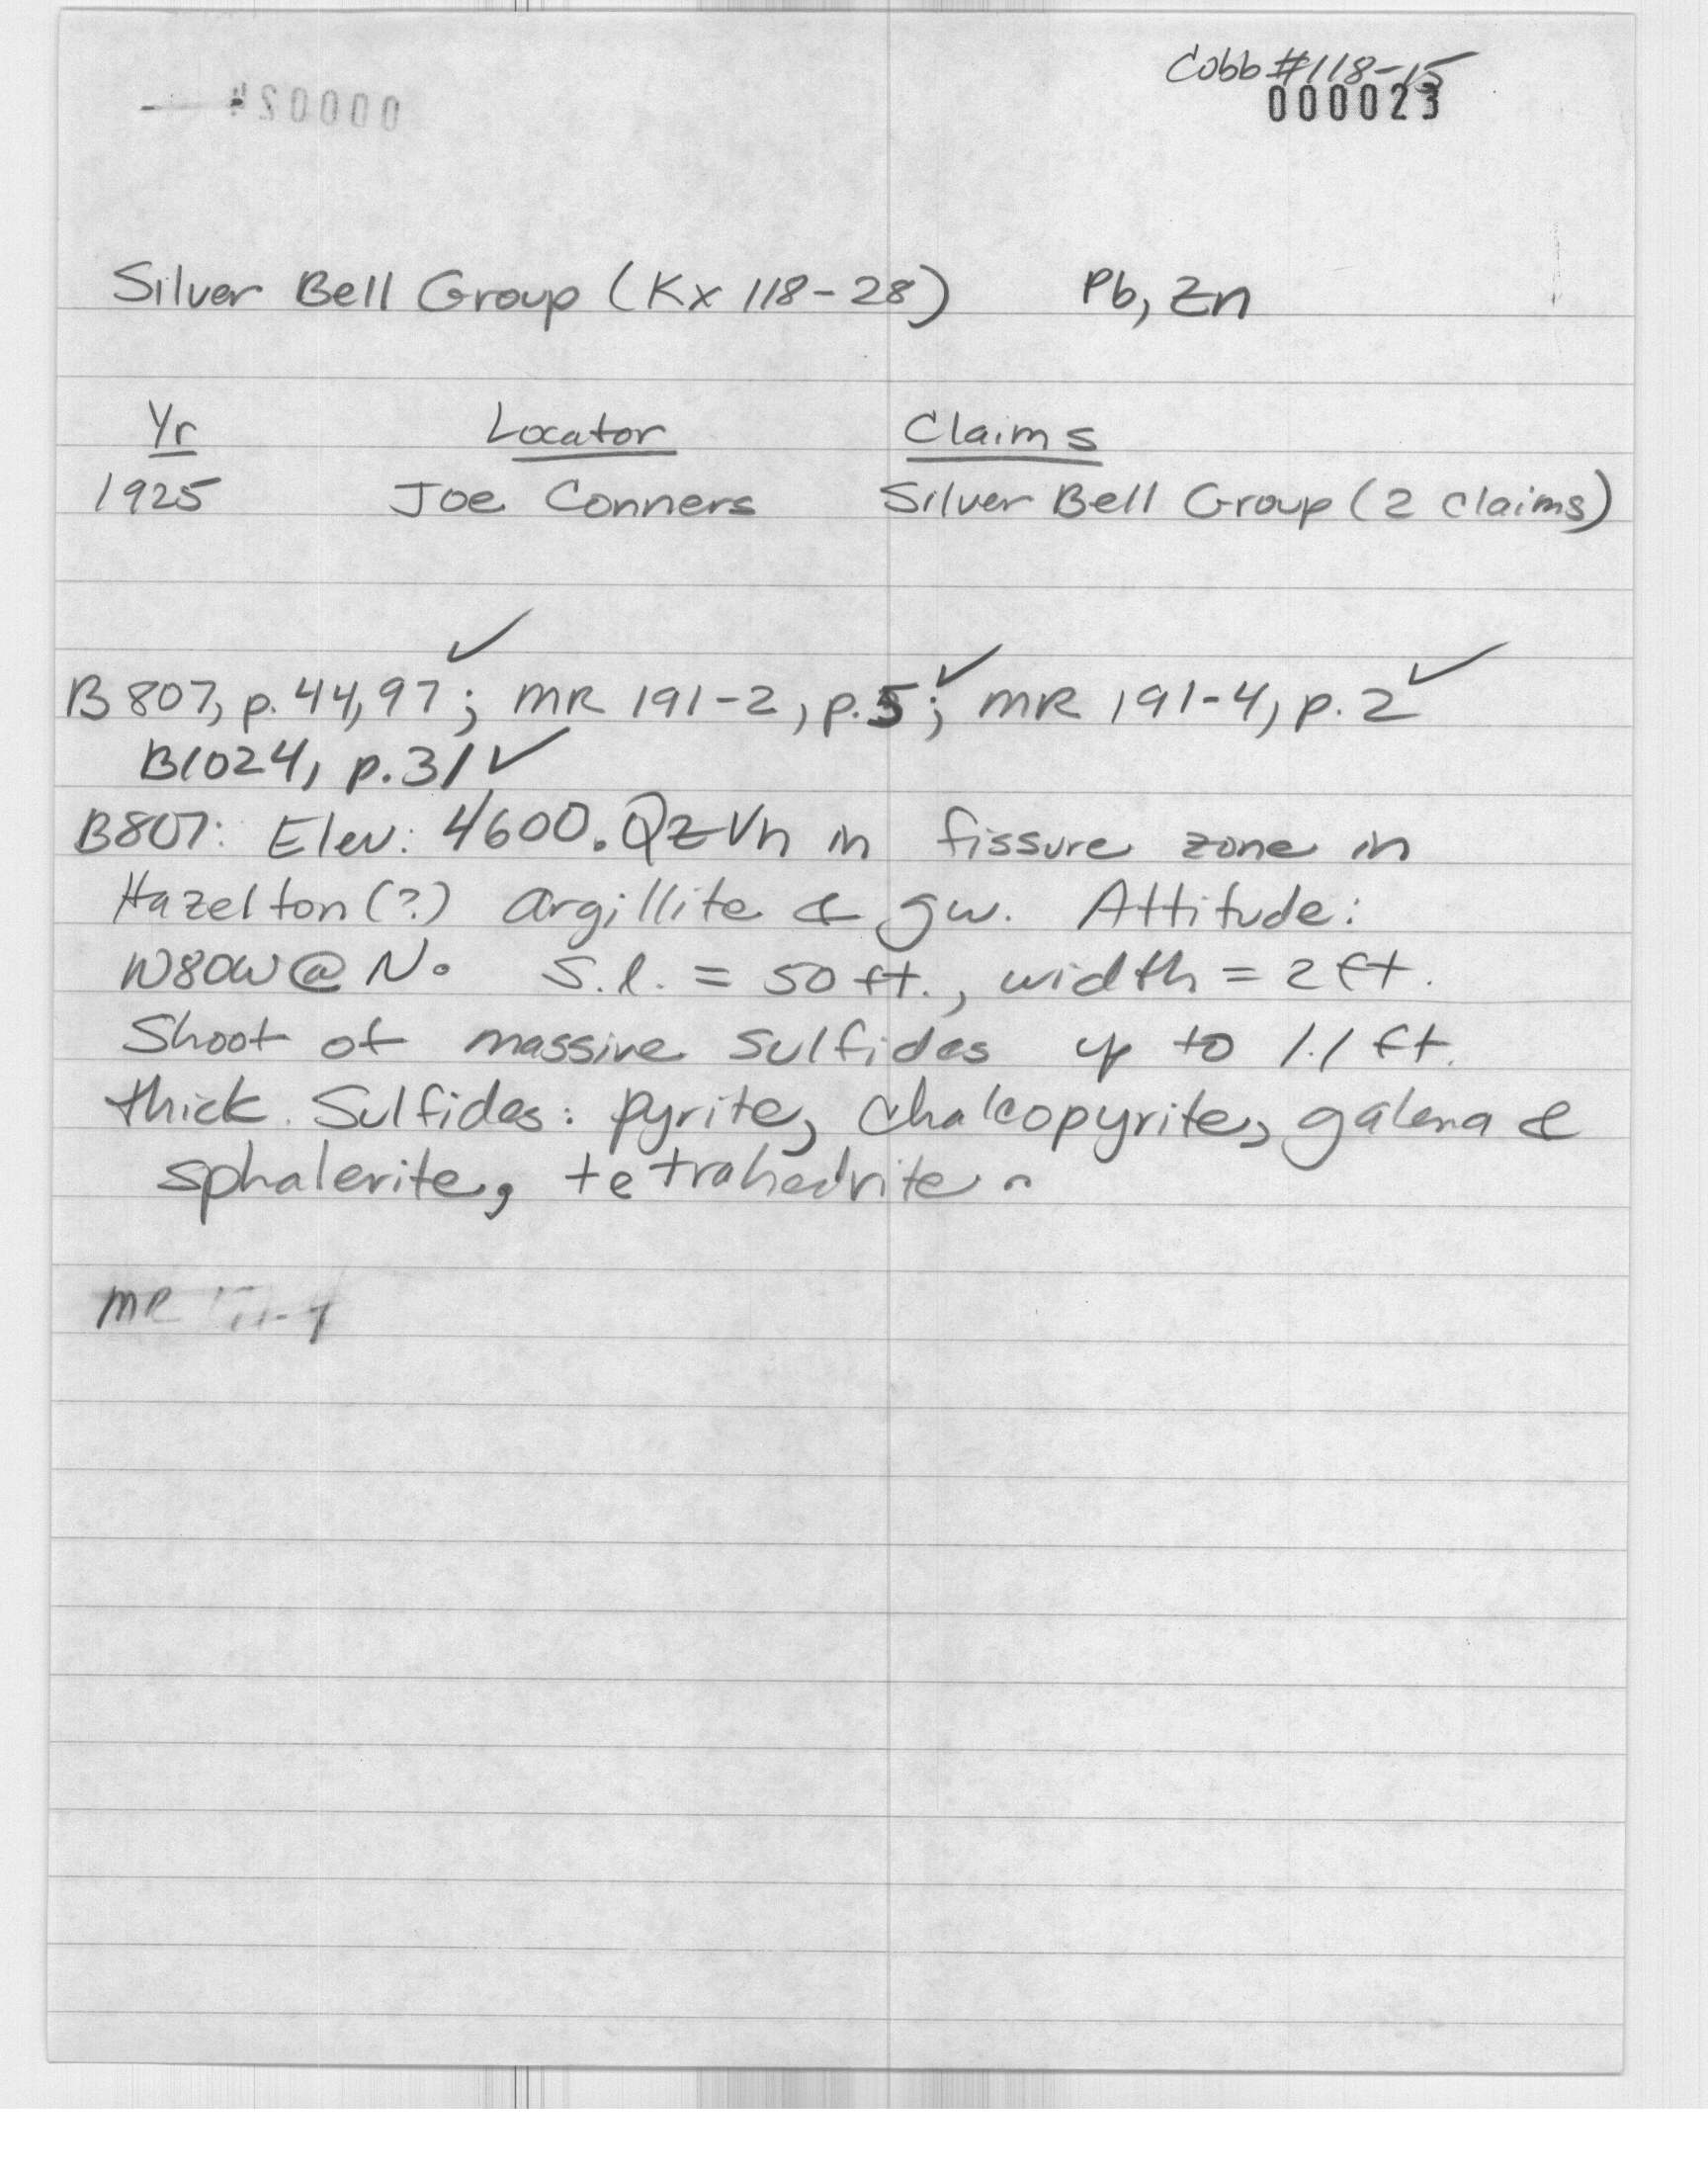 Cobb #118-15
000023
Silver Bell Group (Kx 118-28) Pb, Zn
Yr Locator Claims
1925 Joe Conners Silver Bell Group (2 claims)
B 807, p. 44,97 ✓; MR 191-2, p.5 ✓; MR 191-4, p.2 ✓
B1024, p.31 ✓
B807: Elev: 4600. Qz Vn in fissure zone in
Hazelton(?) argillite & gw. Attitude:
N80W@N. S.l. = 50 ft., width = 2 ft.
Shoot of massive sulfides up to 1.1 ft.
thick. Sulfides: pyrite, chalcopyrite, galena &
sphalerite, tetrahedrite.
MR